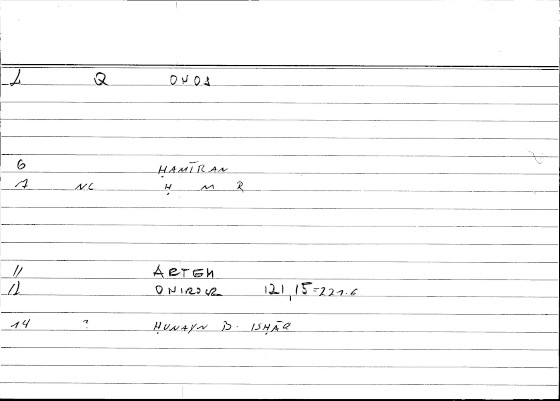 L Q ONOS
6 ḤAMĪRAN
7 NC Ḥ M R
11 ARTEM
12 ONIROCR 121,15=221.6
14 ? ḤUNAYN B. ISḤĀQ